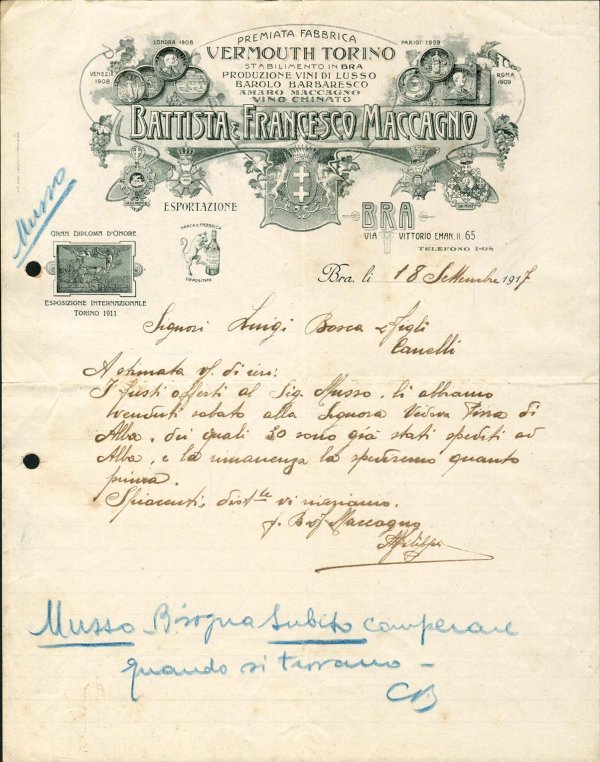 PREMIATA FABBRICA
VERMOUTH TORINO
STABILIMENTO IN BRA
PRODUZIONE VINI DI LUSSO
BAROLO BARBARESCO
AMARO MACCAGNO
VINO CHINATO
LONDRA 1908
VENEZIA 1908
PARIGI 1909
ROMA 1909
BATTISTA E FRANCESCO MACCAGNO
Musso
ESPORTAZIONE
BRA
VIA VITTORIO EMAN. II. 65
TELEFONO 1-08
GRAN DIPLOMA D'ONORE
ESPOSIZIONE INTERNAZIONALE
TORINO 1911
MARCA DI FABBRICA
DEPOSITATA
Bra, li 18 Settembre 1917
Signori Luigi Bosca e figli
Canelli
A stimata V. di ieri:
I fusti offerti al Sig. Musso, li abbiamo
venduti sabato alla Signora Vedova di
Alba, dei quali 20 sono già stati spediti ad
Alba, e la rimanenza la spediremo quanto
prima.
Spiacenti, dist.te vi riveriamo.
p. B e F Maccagno
Musso Bisogna Subito comperare
quando si trovano -
CB